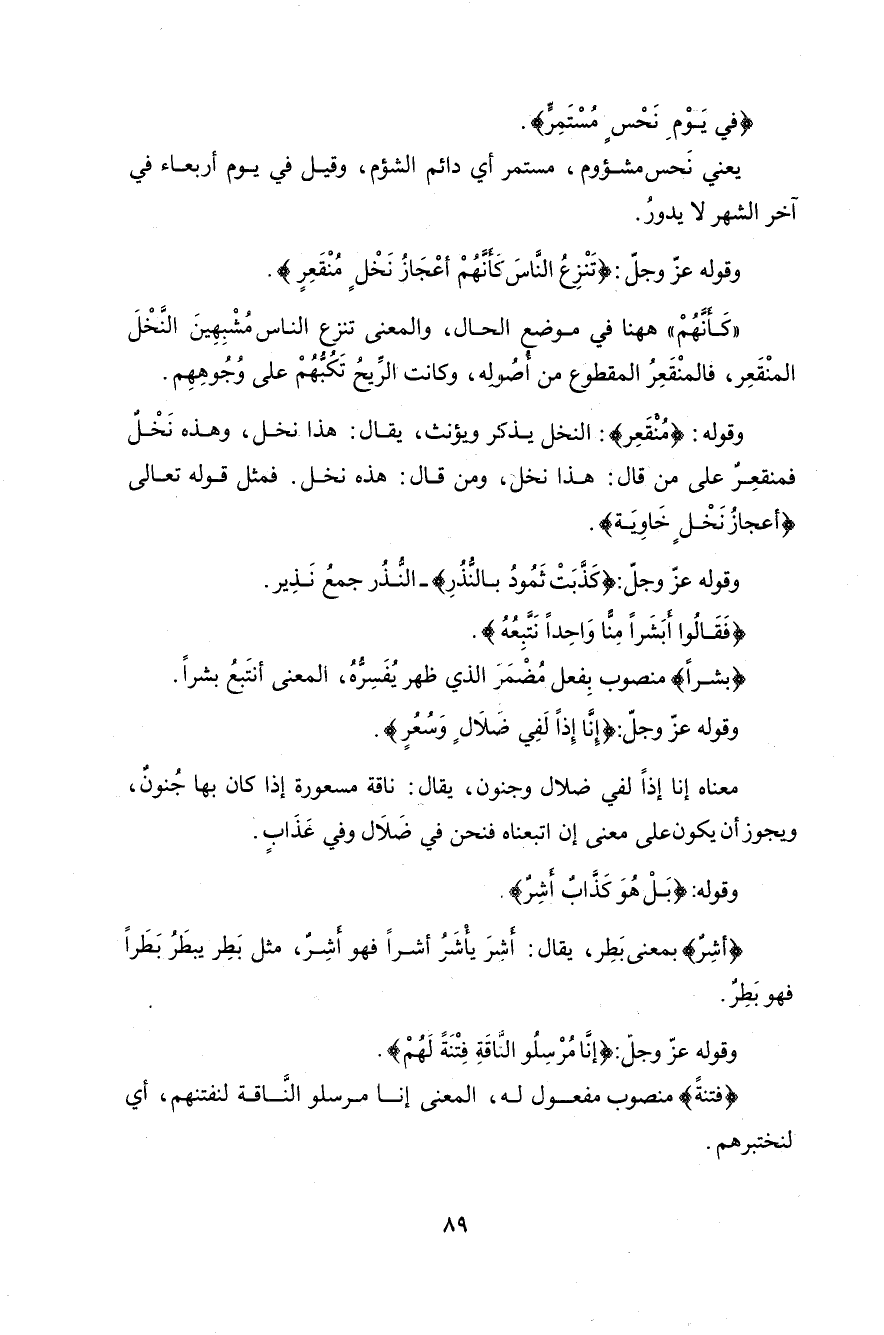 ﴿في يَوْمِ نَحْسٍ مُسْتَمِرٍّ﴾.
يعني نَحس مشؤوم، مستمر أي دائم الشؤم، وقيل في يوم أربعاء في
آخر الشهر لا يدورُ.
وقوله عزّ وجلّ: ﴿تَنْزِعُ النَّاسَ كَأَنَّهُمْ أعْجَازُ نَخْلٍ مُنْقَعِرٍ﴾.
«كَأَنَّهُمْ» ههنا في موضع الحال، والمعنى تنزع الناس مُشْبِهِينَ النَّخْلَ
المنْقَعِر، فالمنْقَعِرُ المقطوع من أُصُولِه، وكانت الرِّيحُ تَكُبُّهُمْ على وُجُوهِهِم.
وقوله: ﴿مُنْقَعِر﴾: النخل يذكر ويؤنث، يقال: هذا نخل، وهذه نَخْلٌ
فمنقعِرٌ على من قال: هذا نخل، ومن قال: هذه نخل. فمثل قوله تعالى
﴿أعجازُ نَخْلٍ خَاوِيَة﴾.
وقوله عزّ وجلّ: ﴿كَذَّبَتْ ثَمُودُ بالنُّذُرِ﴾ - النُّذُر جمعُ نَذِير.
﴿فَقَالُوا أَبَشَراً مِنَّا وَاحِداً نَتَّبِعُهُ﴾.
﴿بشراً﴾ منصوب بِفعل مُضْمَرَ الذي ظهر يُفَسِرُّهُ، المعنى أنتَبعُ بشراً.
وقوله عزّ وجلّ: ﴿إِنَّا إذاً لَفِي ضَلَالٍ وَسُعُرٍ﴾.
معناه إنا إذاً لفي ضلال وجنون، يقال: ناقة مسعورة إذا كان بها جُنونٌ،
ويجوز أن يكون على معنى إن اتبعناه فنحن في ضَلَال وفي عَذَابٍ.
وقوله: ﴿بَلْ هُوَ كَذَّابٌ أَشِرٌ﴾.
﴿أشِرٌ﴾ بمعنى بَطِر، يقال: أَشِرَ يأْشَرُ أشراً فهو أَشِرٌ، مثل بَطِر يبطَرُ بَطَراً
فهو بَطِرٌ.
وقوله عزّ وجلّ: ﴿إنَّا مُرْسِلُو النَّاقَةِ فِتْنَةً لَهُمْ﴾.
﴿فتنةً﴾ منصوب مفعول له، المعنى إنا مرسلو النَّاقة لنفتنهم، أي
لنختبرهم.
٨٩